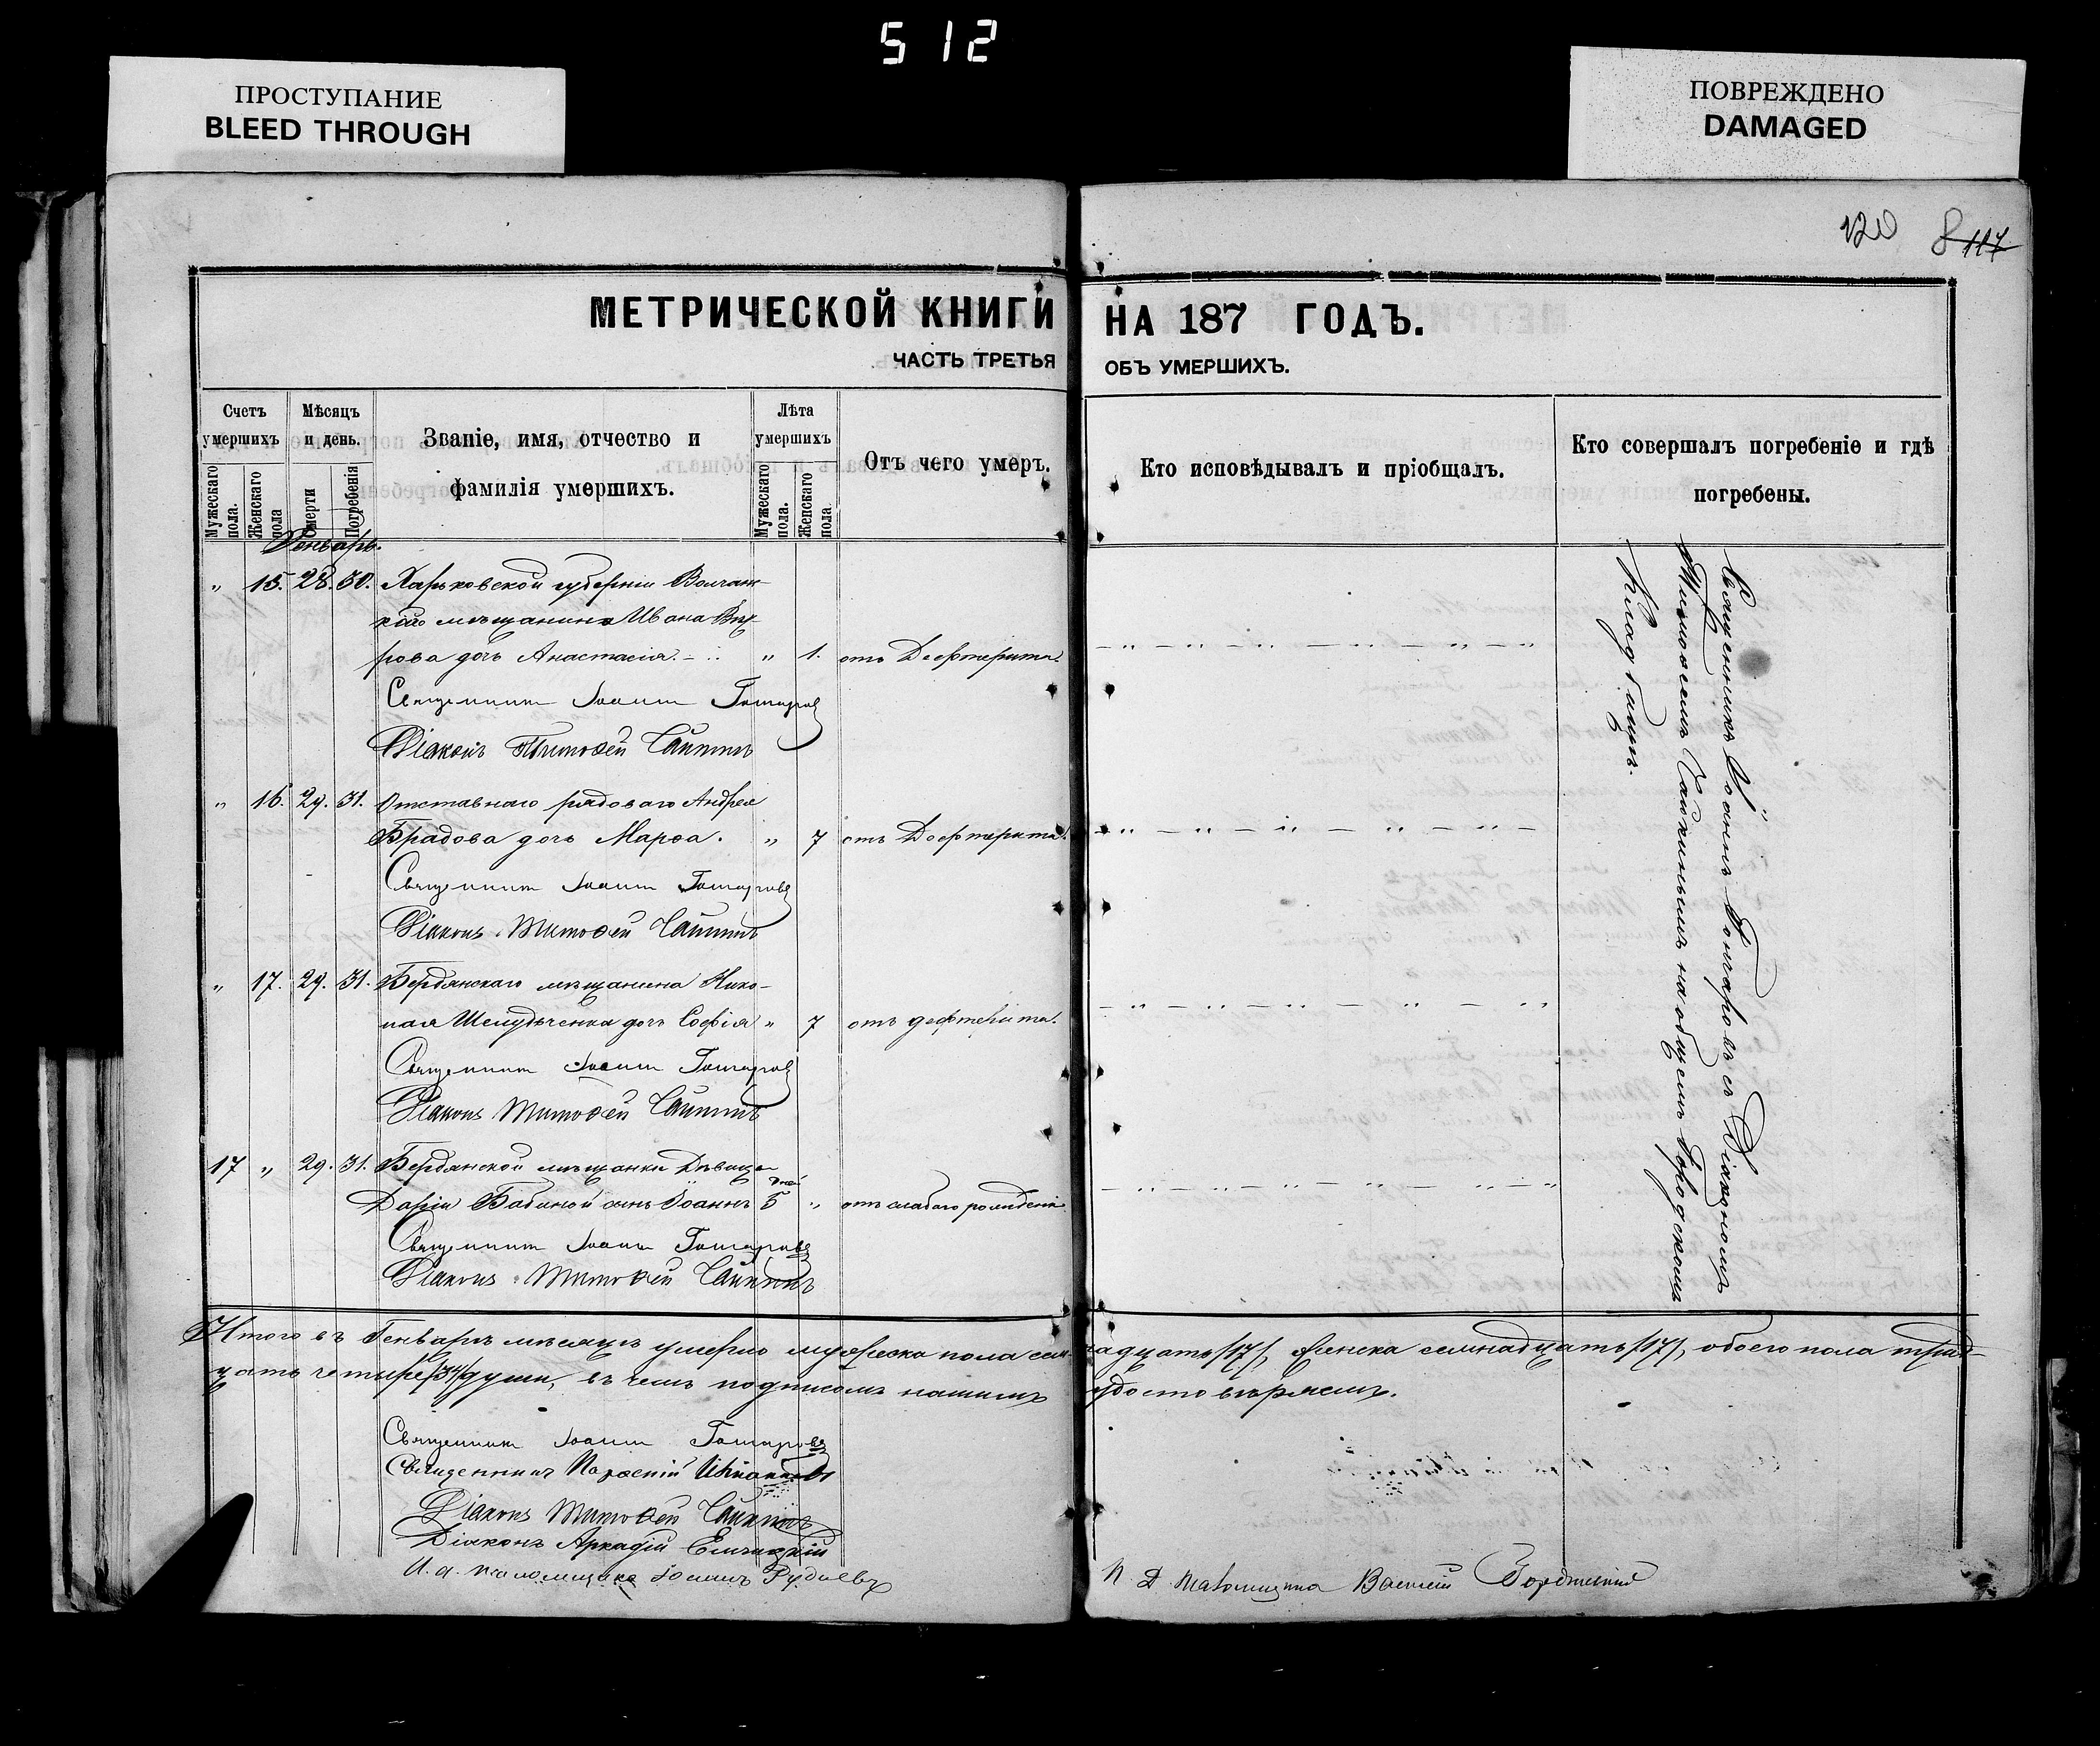 512
ПРОСТУПАНИЕ
BLEED THROUGH
ПОВРЕЖДЕНО
DAMAGED
120 8 117
МЕТРИЧЕСКОЙ КНИГИ НА 187 ГОДЪ.
ЧАСТЬ ТРЕТЬЯ ОБЪ УМЕРШИХЪ.
Счетъ умершихъ
Мужескаго пола.
Женскаго пола
Мѣсяцъ и день.
Смерти
Погребенія
Званіе, имя, отчество и
фамилія умершихъ.
Лѣта умершихъ
Мужескаго пола.
Женскаго пола.
Отъ чего умеръ.
Кто исповѣдывалъ и пріобщалъ.
Кто совершалъ погребеніе и гдѣ
погребены.
Генварь.
„ 15. 28. 30. Харьковской губерніи Волчан-
мѣщанина Ивана
рова дочь Анастасія. „ 1. отъ Дефтерита.
Священникъ Іоаннъ Гончаровъ
Діаконъ Тимоѳей Сайкинъ
„ 16. 29. 31. Отставнаго рядоваго Андрея
Брадова дочь Марѳа. „ 7 отъ Дефтерита.
Священникъ Іоаннъ Гончаровъ
Діаконъ Тимоѳей Сайкинъ
„ 17. 29. 31. Бердянскаго мѣщанина Нико-
лая дочь Софія „ 7 отъ дефтерита.
Священникъ Іоаннъ Гончаровъ
Діаконъ Тимоѳей Сайкинъ
17 „ 29. 31. Бердянской мѣщанки Дѣвицы
Даріи Бабиной сынъ Іоаннъ 5 дней „ отъ слабаго рожденія
Священникъ Іоаннъ Гончаровъ
Діаконъ Тимоѳей Сайкинъ
Священникъ Іоаннъ Гончаровъ съ Діакономъ
Тимоѳеемъ Сайкинымъ на общемъ Городскомъ
Кладбищѣ.
Итого въ Генварѣ мѣсяцѣ умерло мужеска пола сем-надцать /17/, женска семнадцать /17/, обоего пола трид-
цать четыре /34/ души, въ чемъ подписомъ нашимъ удостовѣряемъ.
Священникъ Іоаннъ Гончаровъ
Священникъ Парѳеній
Діаконъ Тимоѳей Сайкинъ
Діаконъ Аркадій
И. д. псаломщика Іоаннъ Рудневъ
И. д. псаломщика Василій